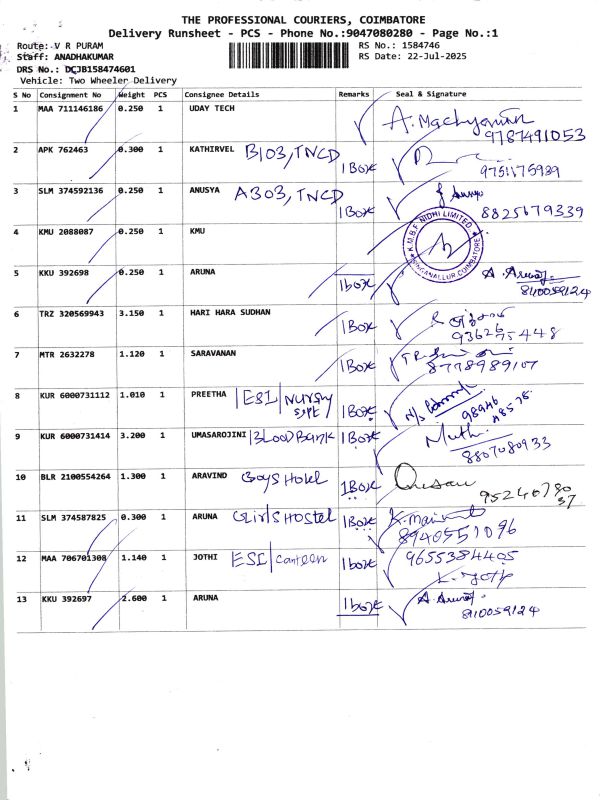 THE PROFESSIONAL COURIERS, COIMBATORE
Delivery Runsheet - PCS - Phone No.:9047080280 - Page No.:1
Route: V R PURAM RS No.: 1584746
Staff: ANADHAKUMAR RS Date: 22-Jul-2025
DRS No.: DCJB158474601
Vehicle: Two Wheeler Delivery
S No Consignment No Weight PCS Consignee Details Remarks Seal & Signature
1 MAA 711146186 0.250 1 UDAY TECH
9787491053
2 APK 762463 0.300 1 KATHIRVEL B103, TNCD 1Box
9751175939
3 SLM 374592136 0.250 1 ANUSYA A303, TNCD 1Box
8825679339
4 KMU 2088087 0.250 1 KMU K.M.B.F. NIDHI LIMITED SINGANALLUR, COIMBATORE
5 KKU 392698 0.250 1 ARUNA 1box A. Aruna
810059124
6 TRZ 320569943 3.150 1 HARI HARA SUDHAN 1Box
9362675448
7 MTR 2632278 1.120 1 SARAVANAN 1Box
8778989107
8 KUR 6000731112 1.010 1 PREETHA ESI Nursing 1Box
98946
48578
9 KUR 6000731414 3.200 1 UMASAROJINI Blood Bank 1Box Muthu
8807080933
10 BLR 2100554264 1.300 1 ARAVIND Boys Hotel 1Box
95240780
37
11 SLM 374587825 0.300 1 ARUNA Girls Hostel 1Box
8940551096
12 MAA 706701308 1.140 1 JOTHI ESI canteen 1box 9655384405
13 KKU 392697 2.600 1 ARUNA 1box A. Aruna
810059124